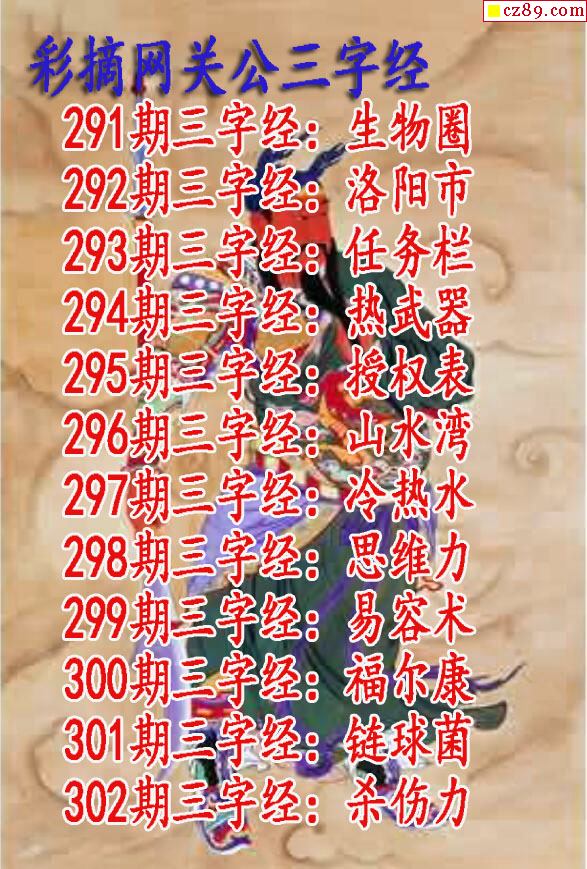 cz89.com
彩摘网关公三字经
291期三字经：生物圈
292期三字经：洛阳市
293期三字经：任务栏
294期三字经：热武器
295期三字经：授权表
296期三字经：山水湾
297期三字经：冷热水
298期三字经：思维力
299期三字经：易容术
300期三字经：福尔康
301期三字经：链球菌
302期三字经：杀伤力